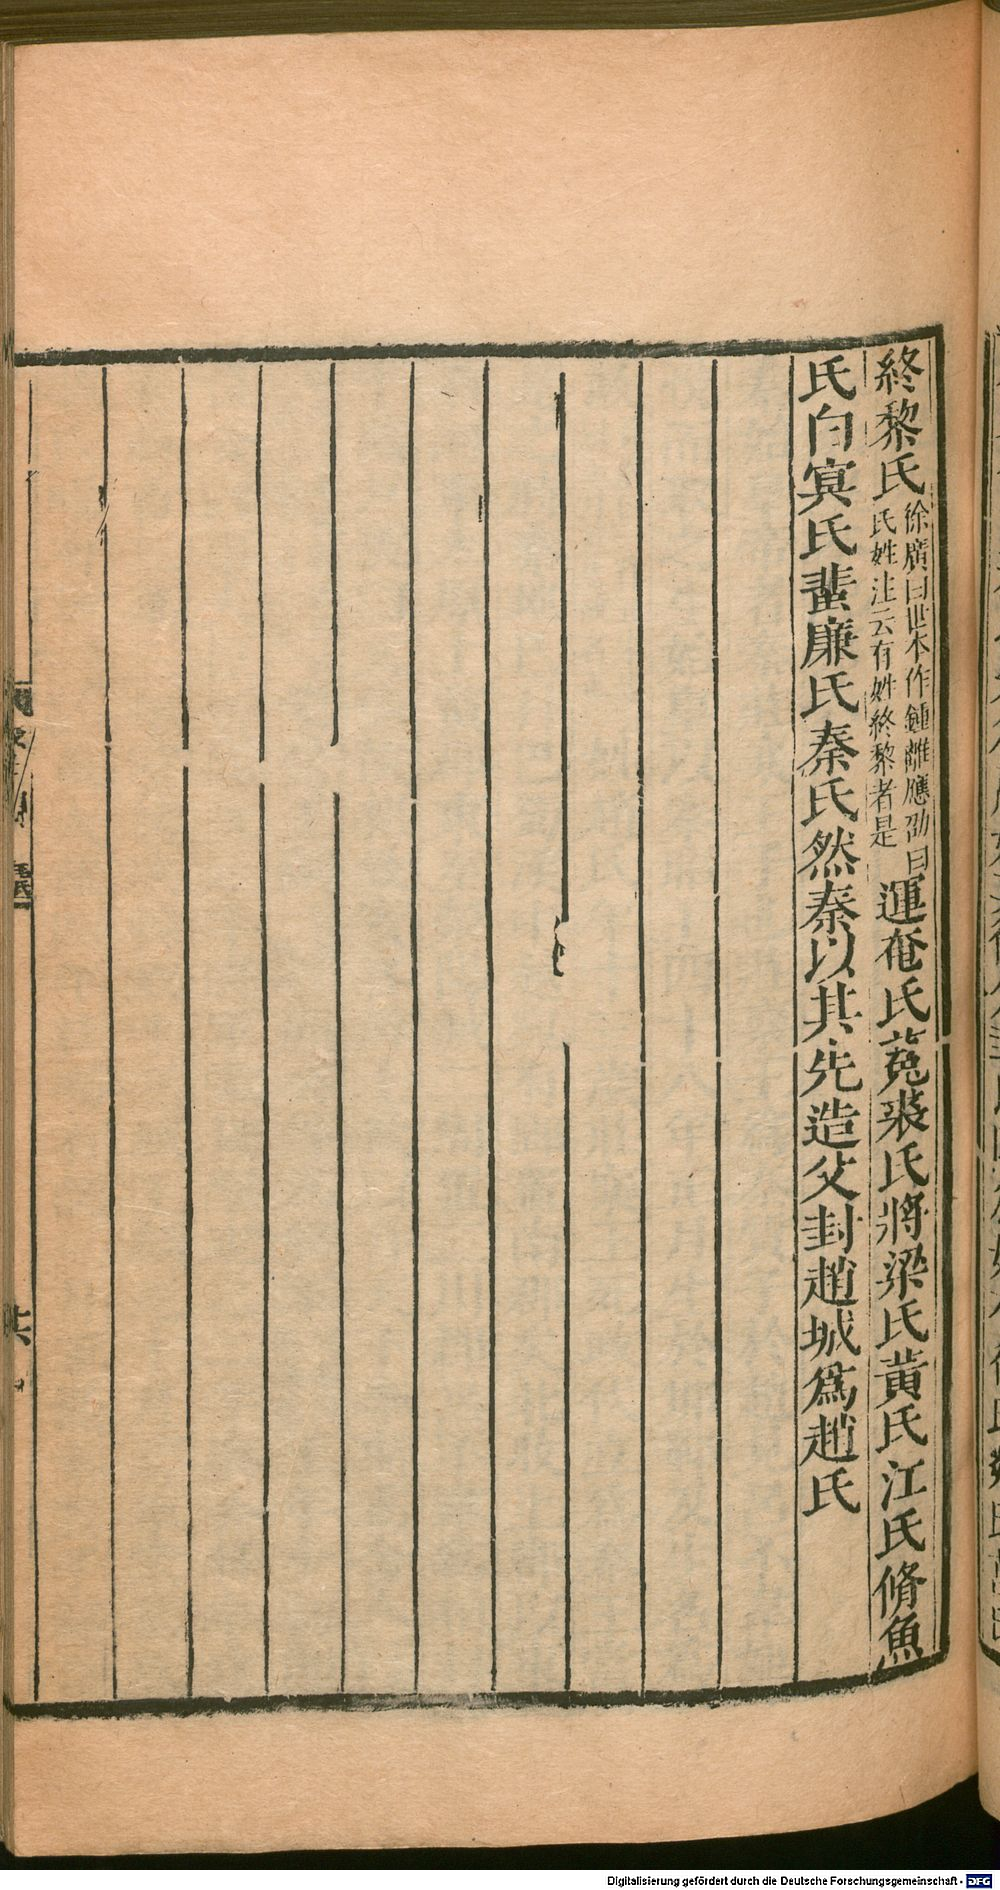 終黎氏徐廣曰世本作鍾離應劭曰氏姓注云有姓終黎者是運奄氏菟裘氏將梁氏黃氏江氏脩魚
氏白冥氏蜚廉氏秦氏然秦以其先造父封趙城爲趙氏
Digitalisierung gefördert durch die Deutsche Forschungsgemeinschaft - DFG